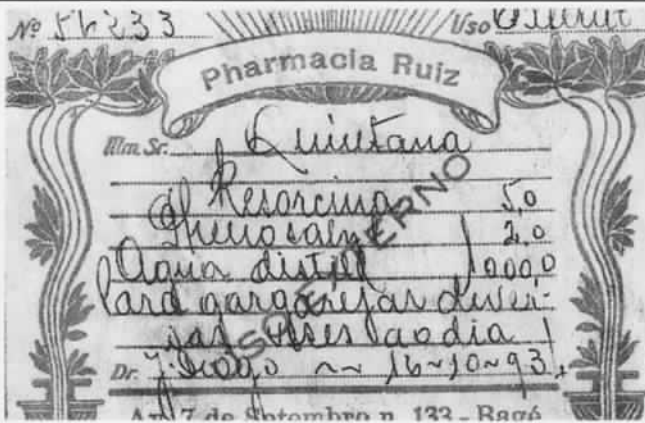 Nº 56233 Uso Externo
Pharmacia Ruiz
Illm. Sr. Quintana
Resorcina 5,0
Phenosalyl 2,0
Agua distill 1000,0
Para gargarejar diver-
sas vezes ao dia
USO EXTERNO
Dr. J. Diogo 16-10-93
Av. 7 de Setembro n. 133 - Bagé